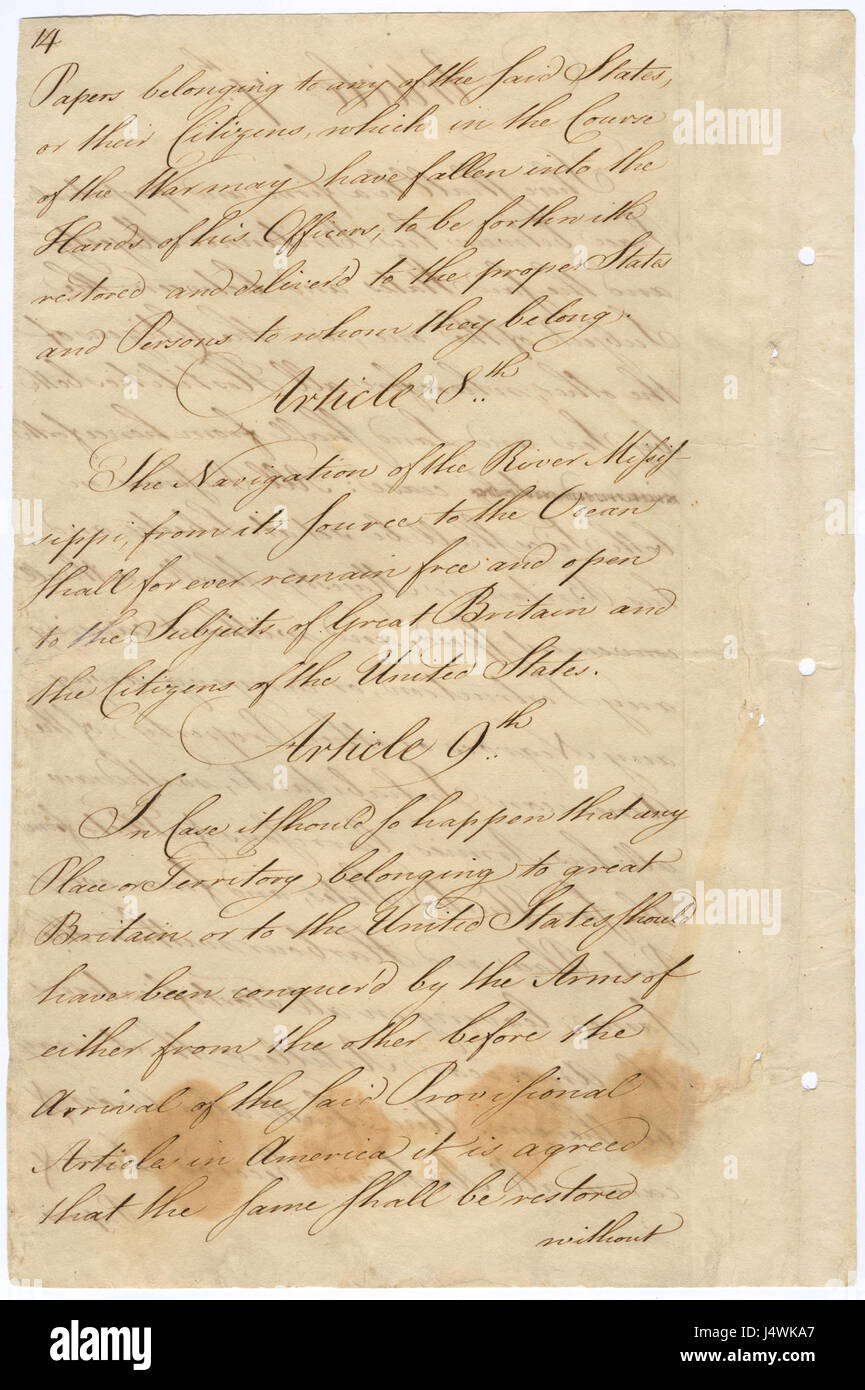 14
Papers belonging to any of the said States,
or their Citizens, which in the Course
of the War may have fallen into the
Hands of his Officers, to be forthwith
restored and deliver'd to the proper States
and Persons to whom they belong.
Article 8.th
The Navigation of the River Missis-
sippi, from its source to the Ocean
shall for ever remain free and open
to the Subjects of Great Britain and
the Citizens of the United States.
Article 9.th
In Case it should so happen that any
Place or Territory belonging to great
Britain or to the United States should
have been conquer'd by the Arms of
either from the other before the
Arrival of the said Provisional
Articles in America it is agreed
that the same shall be restored
without
a alamy stock photo
J4WKA7
www.alamy.com